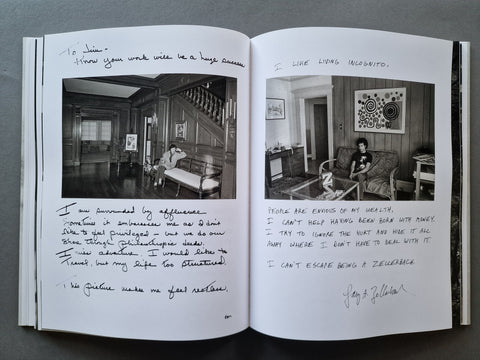 To Jim -
Know your work will be a huge success
I am surrounded by affluence
Sometime it embarrass me as I don't
like to feel privileged - but we do our
Share through philantropic deeds.
I love adventure. I would like to
Travel, but my life too structured.
This picture makes me feel restless.
I LIKE LIVING INCOGNITO.
PEOPLE ARE ENVIOUS OF MY WEALTH,
I CAN'T HELP HAVING BEEN BORN WITH MONEY.
I TRY TO IGNORE THE HURT AND HIDE IT ALL
AWAY WHERE I DON'T HAVE TO DEAL WITH IT.
I CAN'T ESCAPE BEING A ZELLERBACH.
Zellerbach